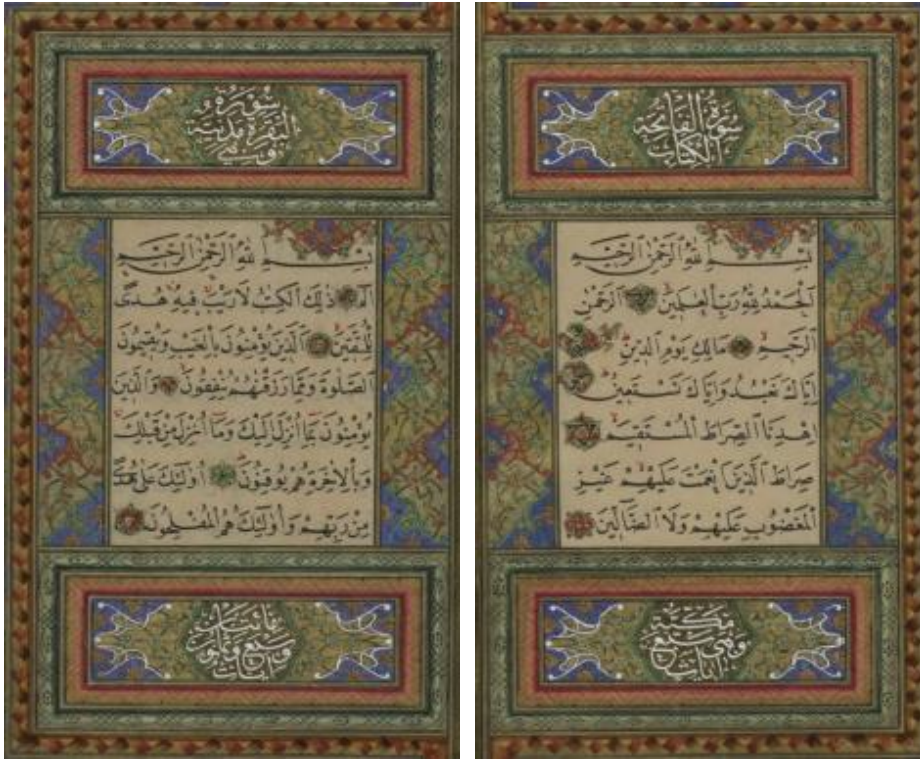 سُورَةُ الفَاتِحَةِ
الكِتَابِ
بِسْمِ اللهِ الرَّحْمٰنِ الرَّحِيمِ
اَلْحَمْدُ لِلّٰهِ رَبِّ الْعٰلَمِينَ اَلرَّحْمٰنِ
الرَّحِيمِ مَالِكِ يَوْمِ الدِّينِ
اِيَّاكَ نَعْبُدُ وَاِيَّاكَ نَسْتَعِينُ
اِهْدِنَا الصِّرَاطَ الْمُسْتَقِيمَ
صِرَاطَ الَّذِينَ اَنْعَمْتَ عَلَيْهِمْ غَيْرِ
الْمَغْضُوبِ عَلَيْهِمْ وَلَا الضَّالِّينَ
مَكِّيَّة
وَهِيَ سَبْعُ
اٰيَات
سُورَةُ
البَقَرَةِ مَدَنِيَّة
وَهِيَ
بِسْمِ اللهِ الرَّحْمٰنِ الرَّحِيمِ
الٓمٓ ذٰلِكَ الْكِتٰبُ لَا رَيْبَ فِيهِ هُدًى
لِلْمُتَّقِينَ اَلَّذِينَ يُؤْمِنُونَ بِالْغَيْبِ وَيُقِيمُونَ
الصَّلٰوةَ وَمِمَّا رَزَقْنٰهُمْ يُنْفِقُونَ وَالَّذِينَ
يُؤْمِنُونَ بِمَا اُنْزِلَ اِلَيْكَ وَمَا اُنْزِلَ مِنْ قَبْلِكَ
وَبِالْاٰخِرَةِ هُمْ يُوقِنُونَ اُولٰئِكَ عَلٰى هُدًى
مِنْ رَبِّهِمْ وَاُولٰئِكَ هُمُ الْمُفْلِحُونَ
مِائَتَانِ
وَسَبْعٌ وَثَمَانُونَ
اٰيَات